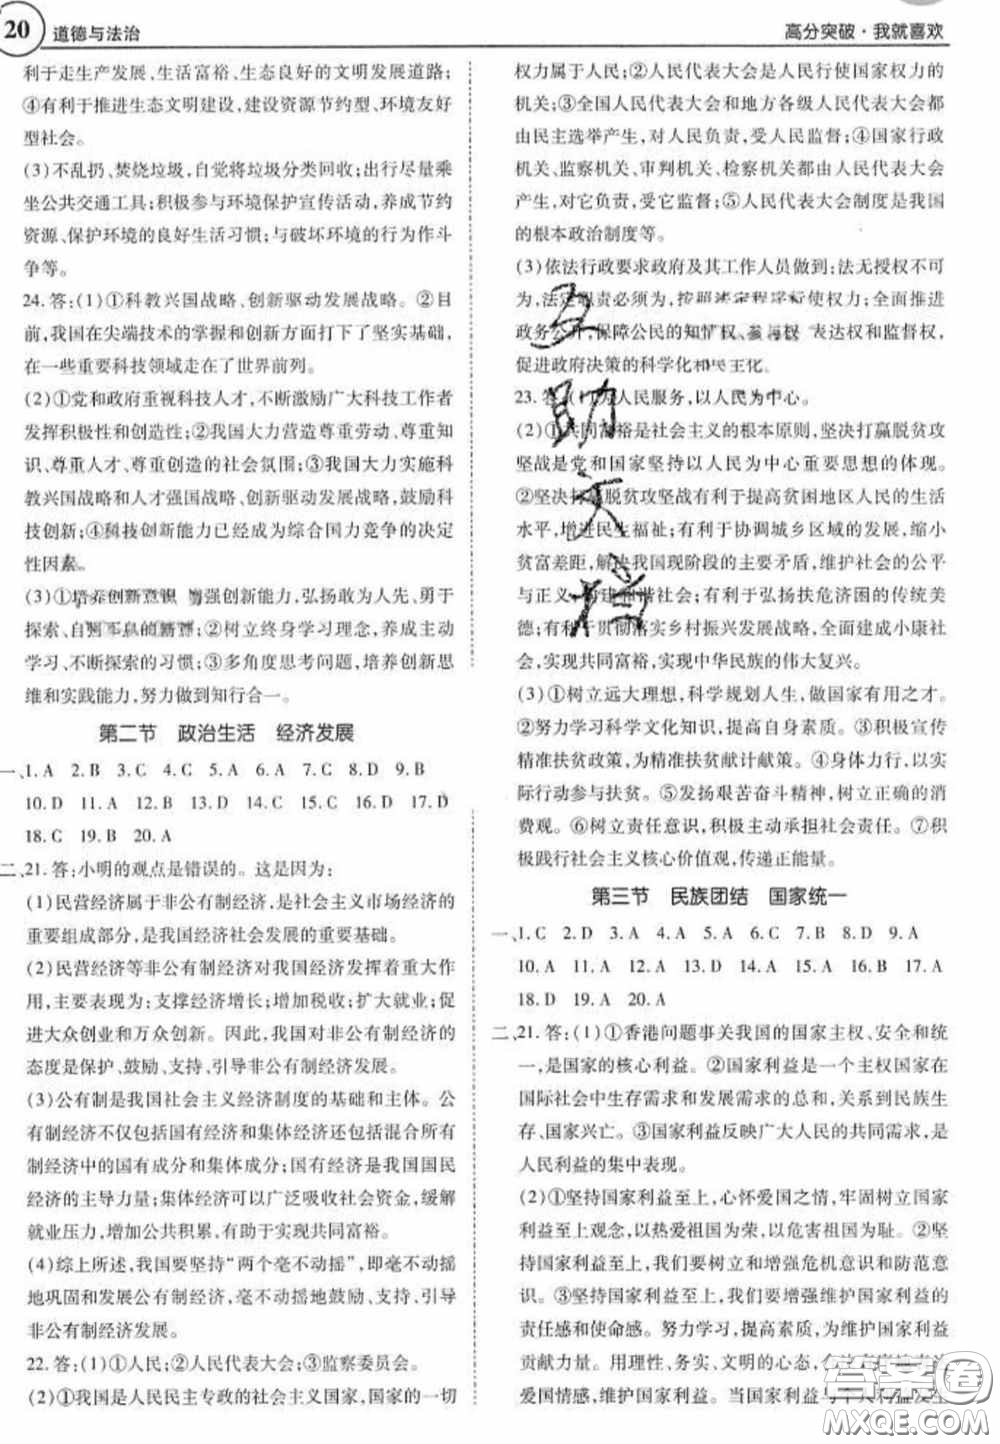 20 道德与法治
高分突破·我就喜欢
利于走生产发展,生活富裕、生态良好的文明发展道路;
④有利于推进生态文明建设,建设资源节约型、环境友好
型社会。
(3)不乱扔、焚烧垃圾,自觉将垃圾分类回收;出行尽量乘
坐公共交通工具;积极参与环境保护宣传活动,养成节约
资源、保护环境的良好生活习惯;与破坏环境的行为作斗
争等。
24.答:(1)①科教兴国战略、创新驱动发展战略。②目
前,我国在尖端技术的掌握和创新方面打下了坚实基础,
在一些重要科技领域走在了世界前列。
(2)①党和政府重视科技人才,不断激励广大科技工作者
发挥积极性和创新;②我国大力营造尊重劳动、尊重知
识、尊重人才、尊重创造的社会氛围;③我国大力实施科
教兴国战略和人才强国战略,创新驱动发展战略,鼓励科
技创新;④科技创新能力已经成为综合国力竞争的决定
性因素。
(3)①培养创新意识,增强创新能力,弘扬敢为人先、勇于
探索、自强不息的精神;②树立终身学习理念,养成主动
学习、不断探索的习惯;③多角度思考问题,培养创新思
维和实践能力,努力做到知行合一。
第二节 政治生活 经济发展
一、1.A 2.B 3.C 4.C 5.A 6.A 7.C 8.D 9.B
10.D 11.A 12.B 13.D 14.C 15.D 16.D 17.D
18.C 19.B 20.A
二、21.答:小明的观点是错误的。这是因为:
(1)民营经济属于非公有制经济,是社会主义市场经济的
重要组成部分,是我国经济社会发展的重要基础。
(2)民营经济等非公有制经济对我国经济发挥着重大作
用,主要表现为:支撑经济增长;增加税收;扩大就业;促
进大众创业和万众创新。因此,我国对非公有制经济的
态度是保护、鼓励、支持、引导非公有制经济的发展。
(3)公有制是我国社会主义经济制度的基础和主体。公
有制经济不仅包括国有经济和集体经济还包括混合所有
制经济中的国有成分和集体成分;国有经济是我国国民
经济的主导力量;集体经济可以广泛吸收社会资金,缓解
就业压力,增加公共积累,有助于实现共同富裕。
(4)综上所述,我国要坚持“两个毫不动摇”,即毫不动摇
地巩固和发展公有制经济,毫不动摇地鼓励、支持、引导
非公有制经济发展。
22.答:(1)①人民;②人民代表大会;③监察委员会。
(2)①我国是人民民主专政的社会主义国家,国家的一切
权力属于人民;②人民代表大会是人民行使国家权力的
机关;③全国人民代表大会和地方各级人民代表大会都
由民主选举产生,对人民负责,受人民监督;④国家行政
机关、监察机关、审判机关、检察机关都由人民代表大会
产生,对它负责,受它监督;⑤人民代表大会制度是我国
的根本政治制度等。
(3)依法行政要求政府及其工作人员做到:法无授权不可
为,法定职责必须为,按照法定程序行使权力;全面推进
政务公开,保障公民的知情权、参与权、表达权和监督权,
促进政府决策的科学化和民主化。
23.答:(1)为人民服务,以人民为中心。
(2)①共同富裕是社会主义的根本原则,坚决打赢脱贫攻
坚战是党和国家坚持以人民为中心重要思想的体现。
②坚决打赢脱贫攻坚战有利于提高贫困地区人民的生活
水平,增进民生福祉;有利于协调城乡区域的发展,缩小
贫富差距,解决我国现阶段的主要矛盾,维护社会的公平
与正义,构建和谐社会;有利于弘扬扶危济困的传统美
德;有利于贯彻落实乡村振兴发展战略,全面建成小康社
会,实现共同富裕,实现中华民族的伟大复兴。
(3)①树立远大理想,科学规划人生,做国家有用之才。
②努力学习科学文化知识,提高自身素质。③积极宣传
精准扶贫政策,为精准扶贫献计献策。④身体力行,以实
际行动参与扶贫。⑤发扬艰苦奋斗精神,树立正确的消
费观。⑥树立责任意识,积极主动承担社会责任。⑦积
极践行社会主义核心价值观,传递正能量。
第三节 民族团结 国家统一
一、1.C 2.D 3.A 4.A 5.A 6.B 7.D 8.D 9.A
10.A 11.D 12.A 13.D 14.D 15.A 16.B 17.A
18.D 19.A 20.A
二、21.答:(1)①香港问题事关我国的国家主权、安全和统
一,是国家的核心利益。②国家利益是一个主权国家在
国际社会中生存需求和发展需求的总和,关系到民族生
存、国家兴亡。③国家利益反映广大人民的共同需求,是
人民利益的集中表现。
(2)①坚持国家利益至上,心怀爱国之情,牢固树立国家
利益至上观念,以热爱祖国为荣,以危害祖国为耻。②坚
持国家利益至上,我们要树立和增强危机意识和防范意
识。③坚持国家利益至上,我们要增强维护国家利益的
责任感和使命感。努力学习,提高素质,为维护国家利益
贡献力量。用理性、务实、文明的心态,合法有序表达
爱国情感,维护国家利益。当国家利益与个人利益发生
互助文档
答案圈
MXQE.COM